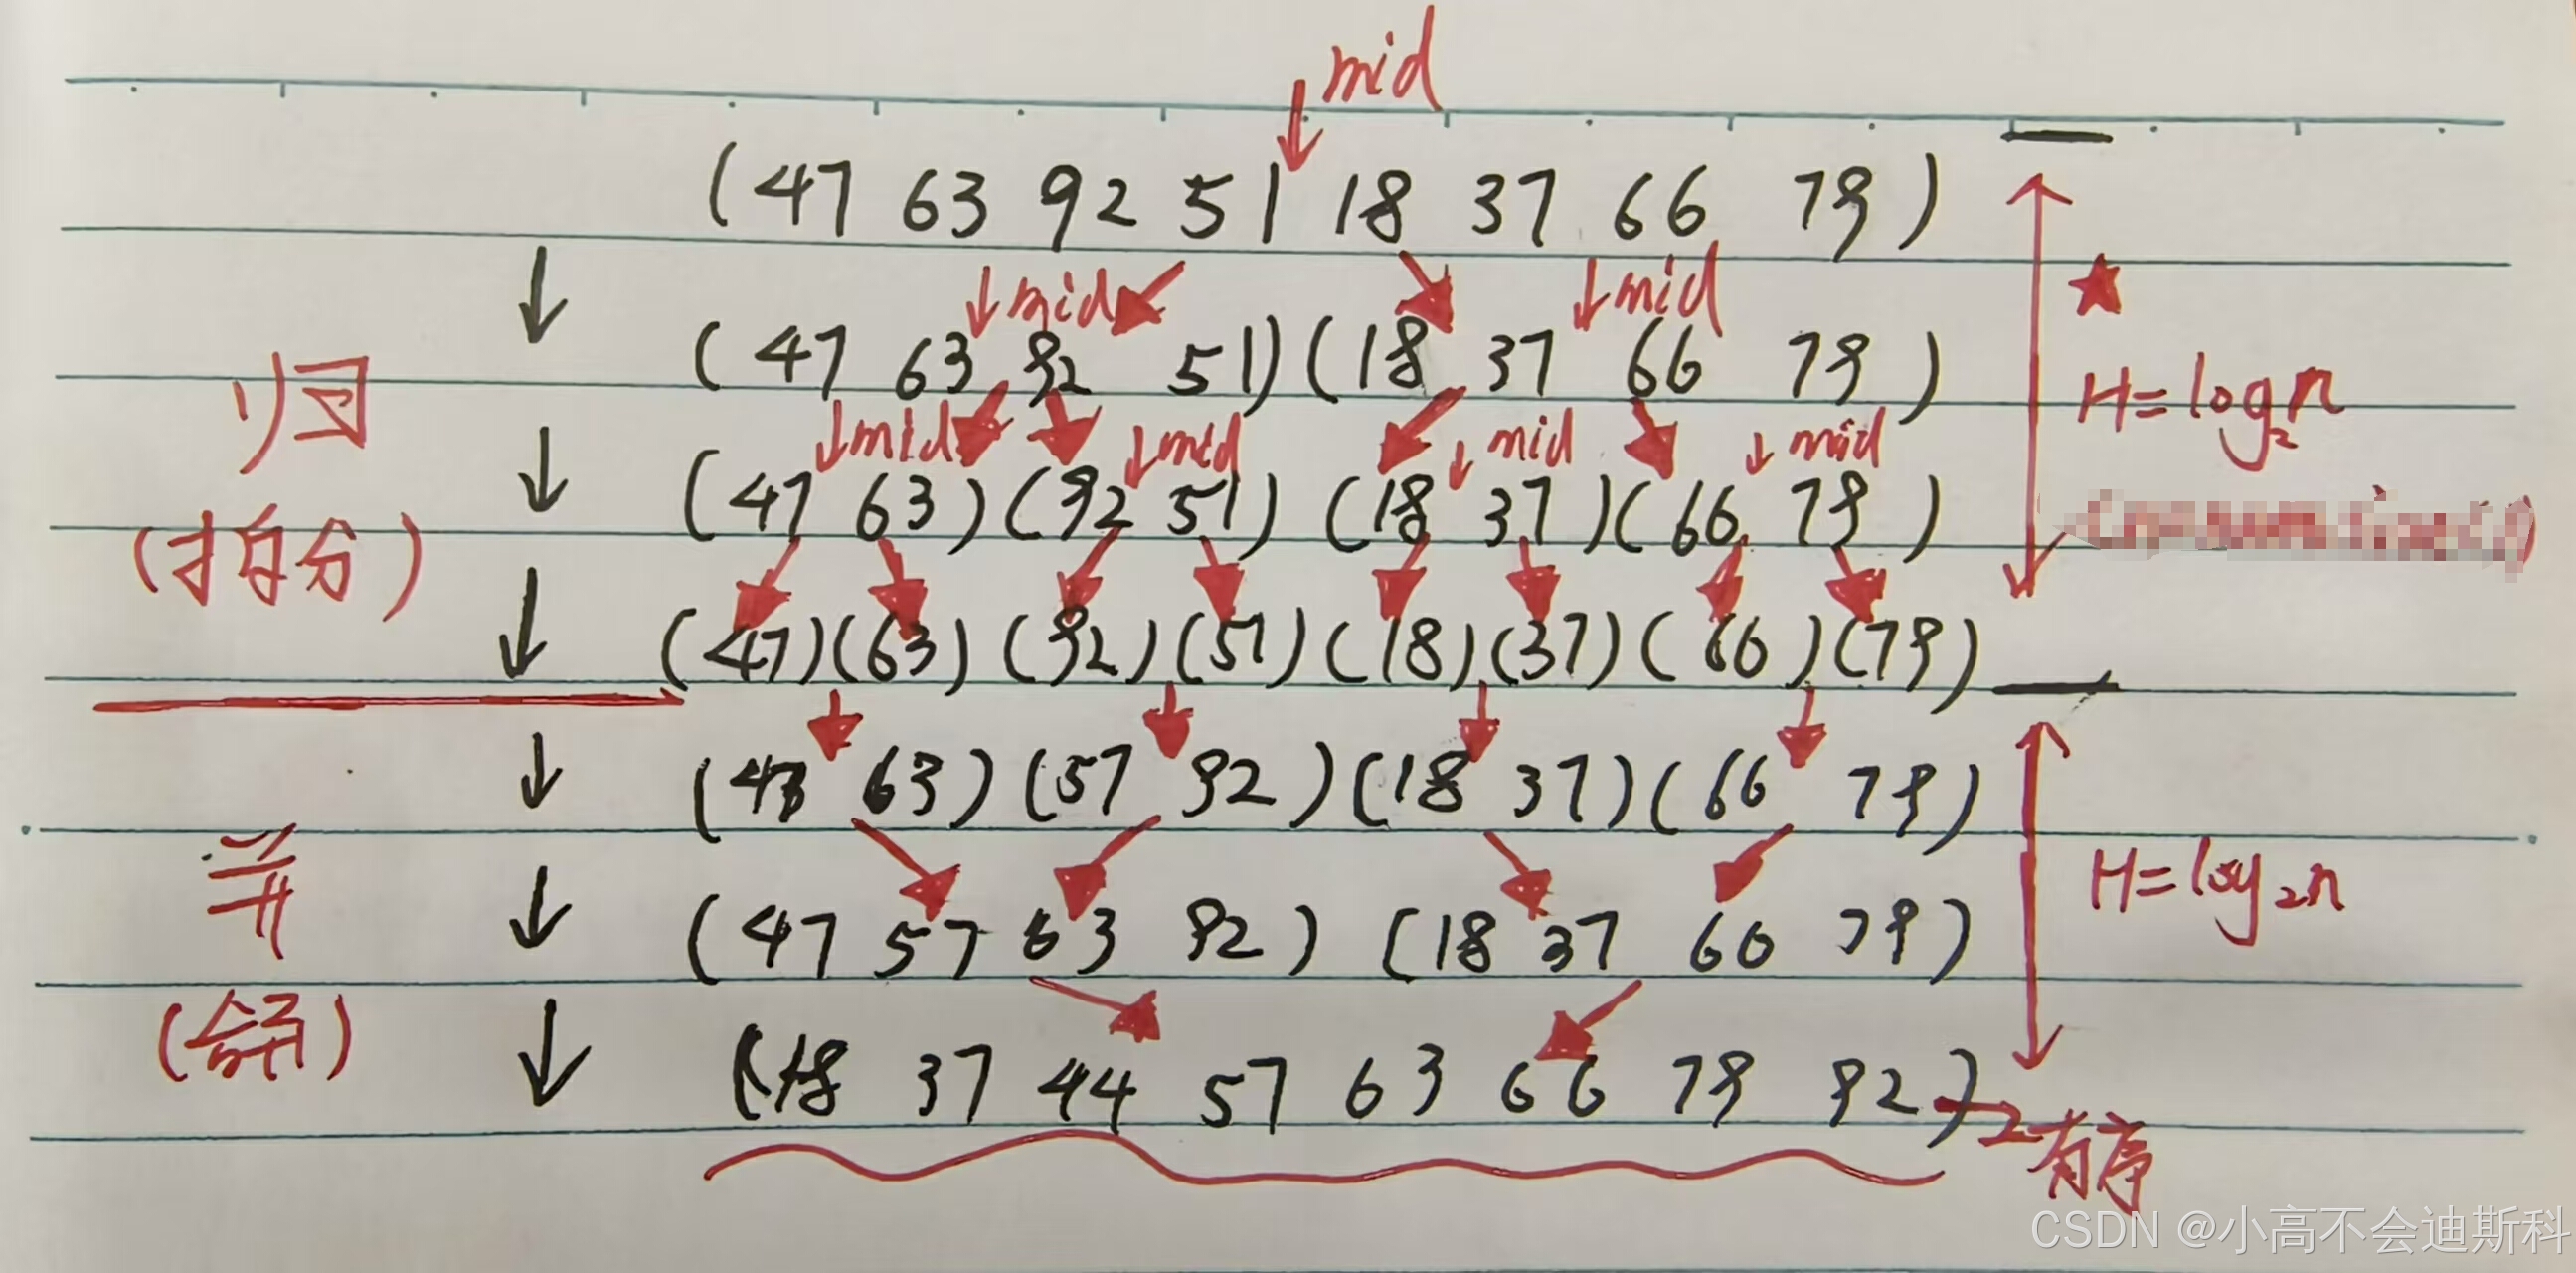 mid
(47 63 92 51 18 37 66 79)
mid mid
(47 63 92 51)(18 37 66 79)
归
mid mid mid mid
H=log₂n
(47 63)(92 51)(18 37)(66 79)
(拆分)
(47)(63)(92)(51)(18)(37)(66)(79)
(47 63)(57 92)(18 37)(66 79)
并
H=log₂n
(47 57 63 92)(18 37 66 79)
(合并)
(18 37 44 57 63 66 79 92)
有序
CSDN @小高不会迪斯科